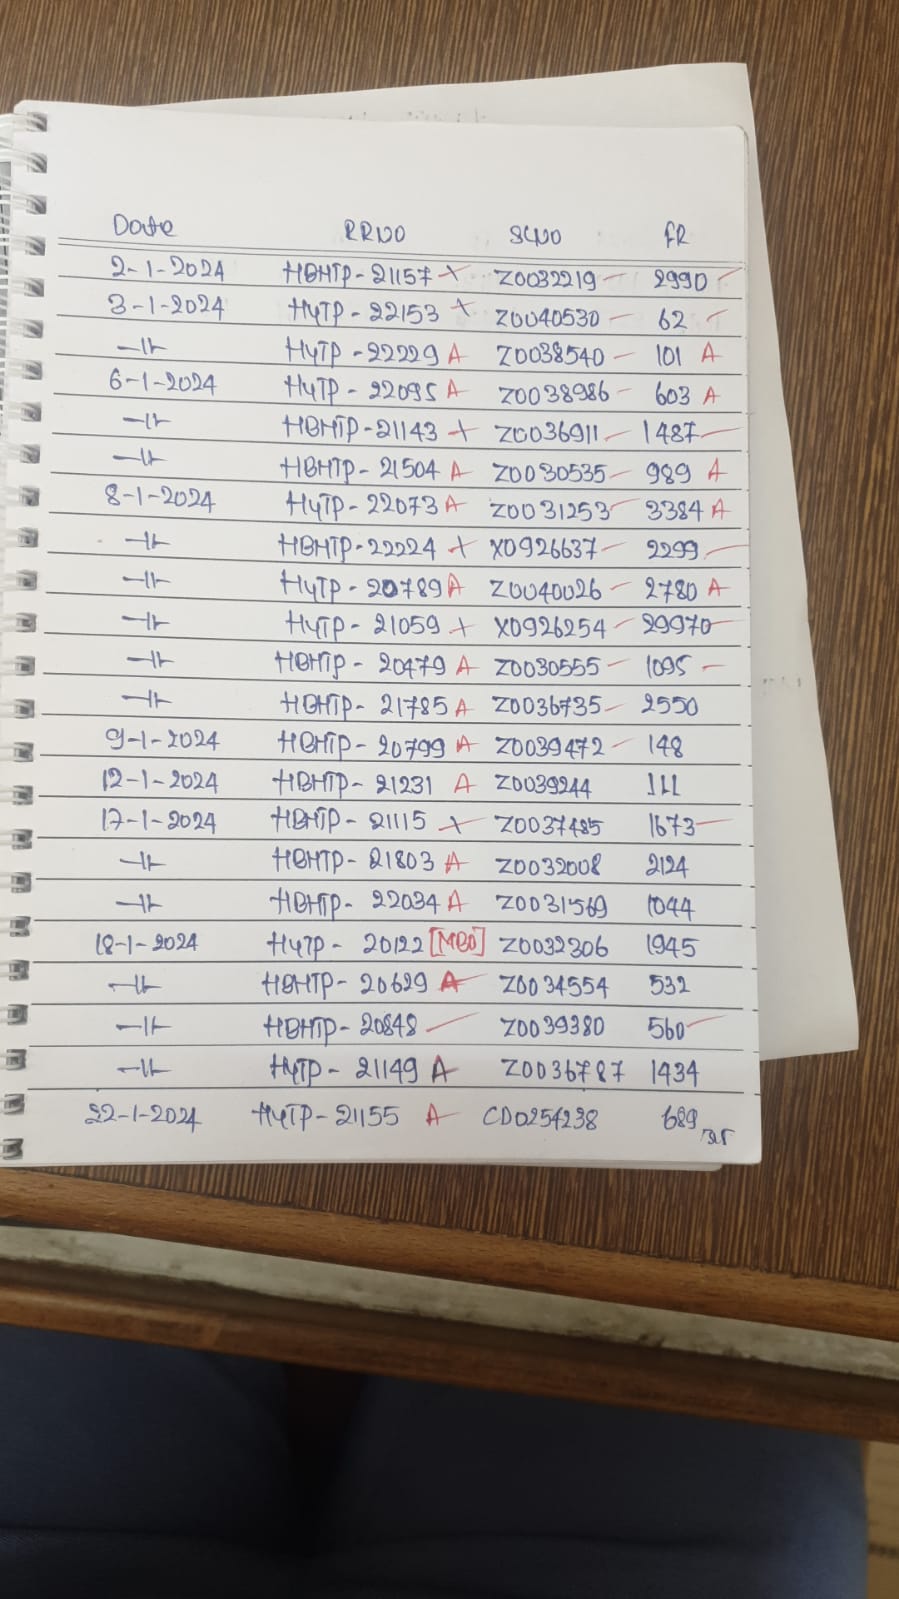 Date RRNO SLNO FR
2-1-2024 HBHTP-21157 Z0032219 2990
3-1-2024 HYTP-22153 Z0040530 62
-||- HYTP-22229 A Z0038540 101 A
6-1-2024 HYTP-22095 A Z0038986 603 A
-||- HBHTP-21143 Z0036911 1487
-||- HBHTP-21504 A Z0030535 989 A
8-1-2024 HYTP-22073 A Z0031253 3384 A
-||- HBHTP-22224 X0926637 2299
-||- HYTP-20789 A Z0040026 2780 A
-||- HYTP-21059 X0926254 29970
-||- HBHTP-20479 A Z0030555 1095
-||- HBHTP-21785 A Z0036735 2550
9-1-2024 HBHTP-20799 A Z0039472 148
12-1-2024 HBHTP-21231 A Z0039244 111
17-1-2024 HBHTP-21115 Z0037485 1673
-||- HBHTP-21803 A Z0032008 2124
-||- HBHTP-22034 A Z0031569 1044
18-1-2024 HYTP-20122 [MBO] Z0032306 1945
-||- HBHTP-20629 A Z0034554 532
-||- HBHTP-20848 Z0039380 560
-||- HYTP-21149 A Z0036787 1434
22-1-2024 HYTP-21155 A CD0254238 689